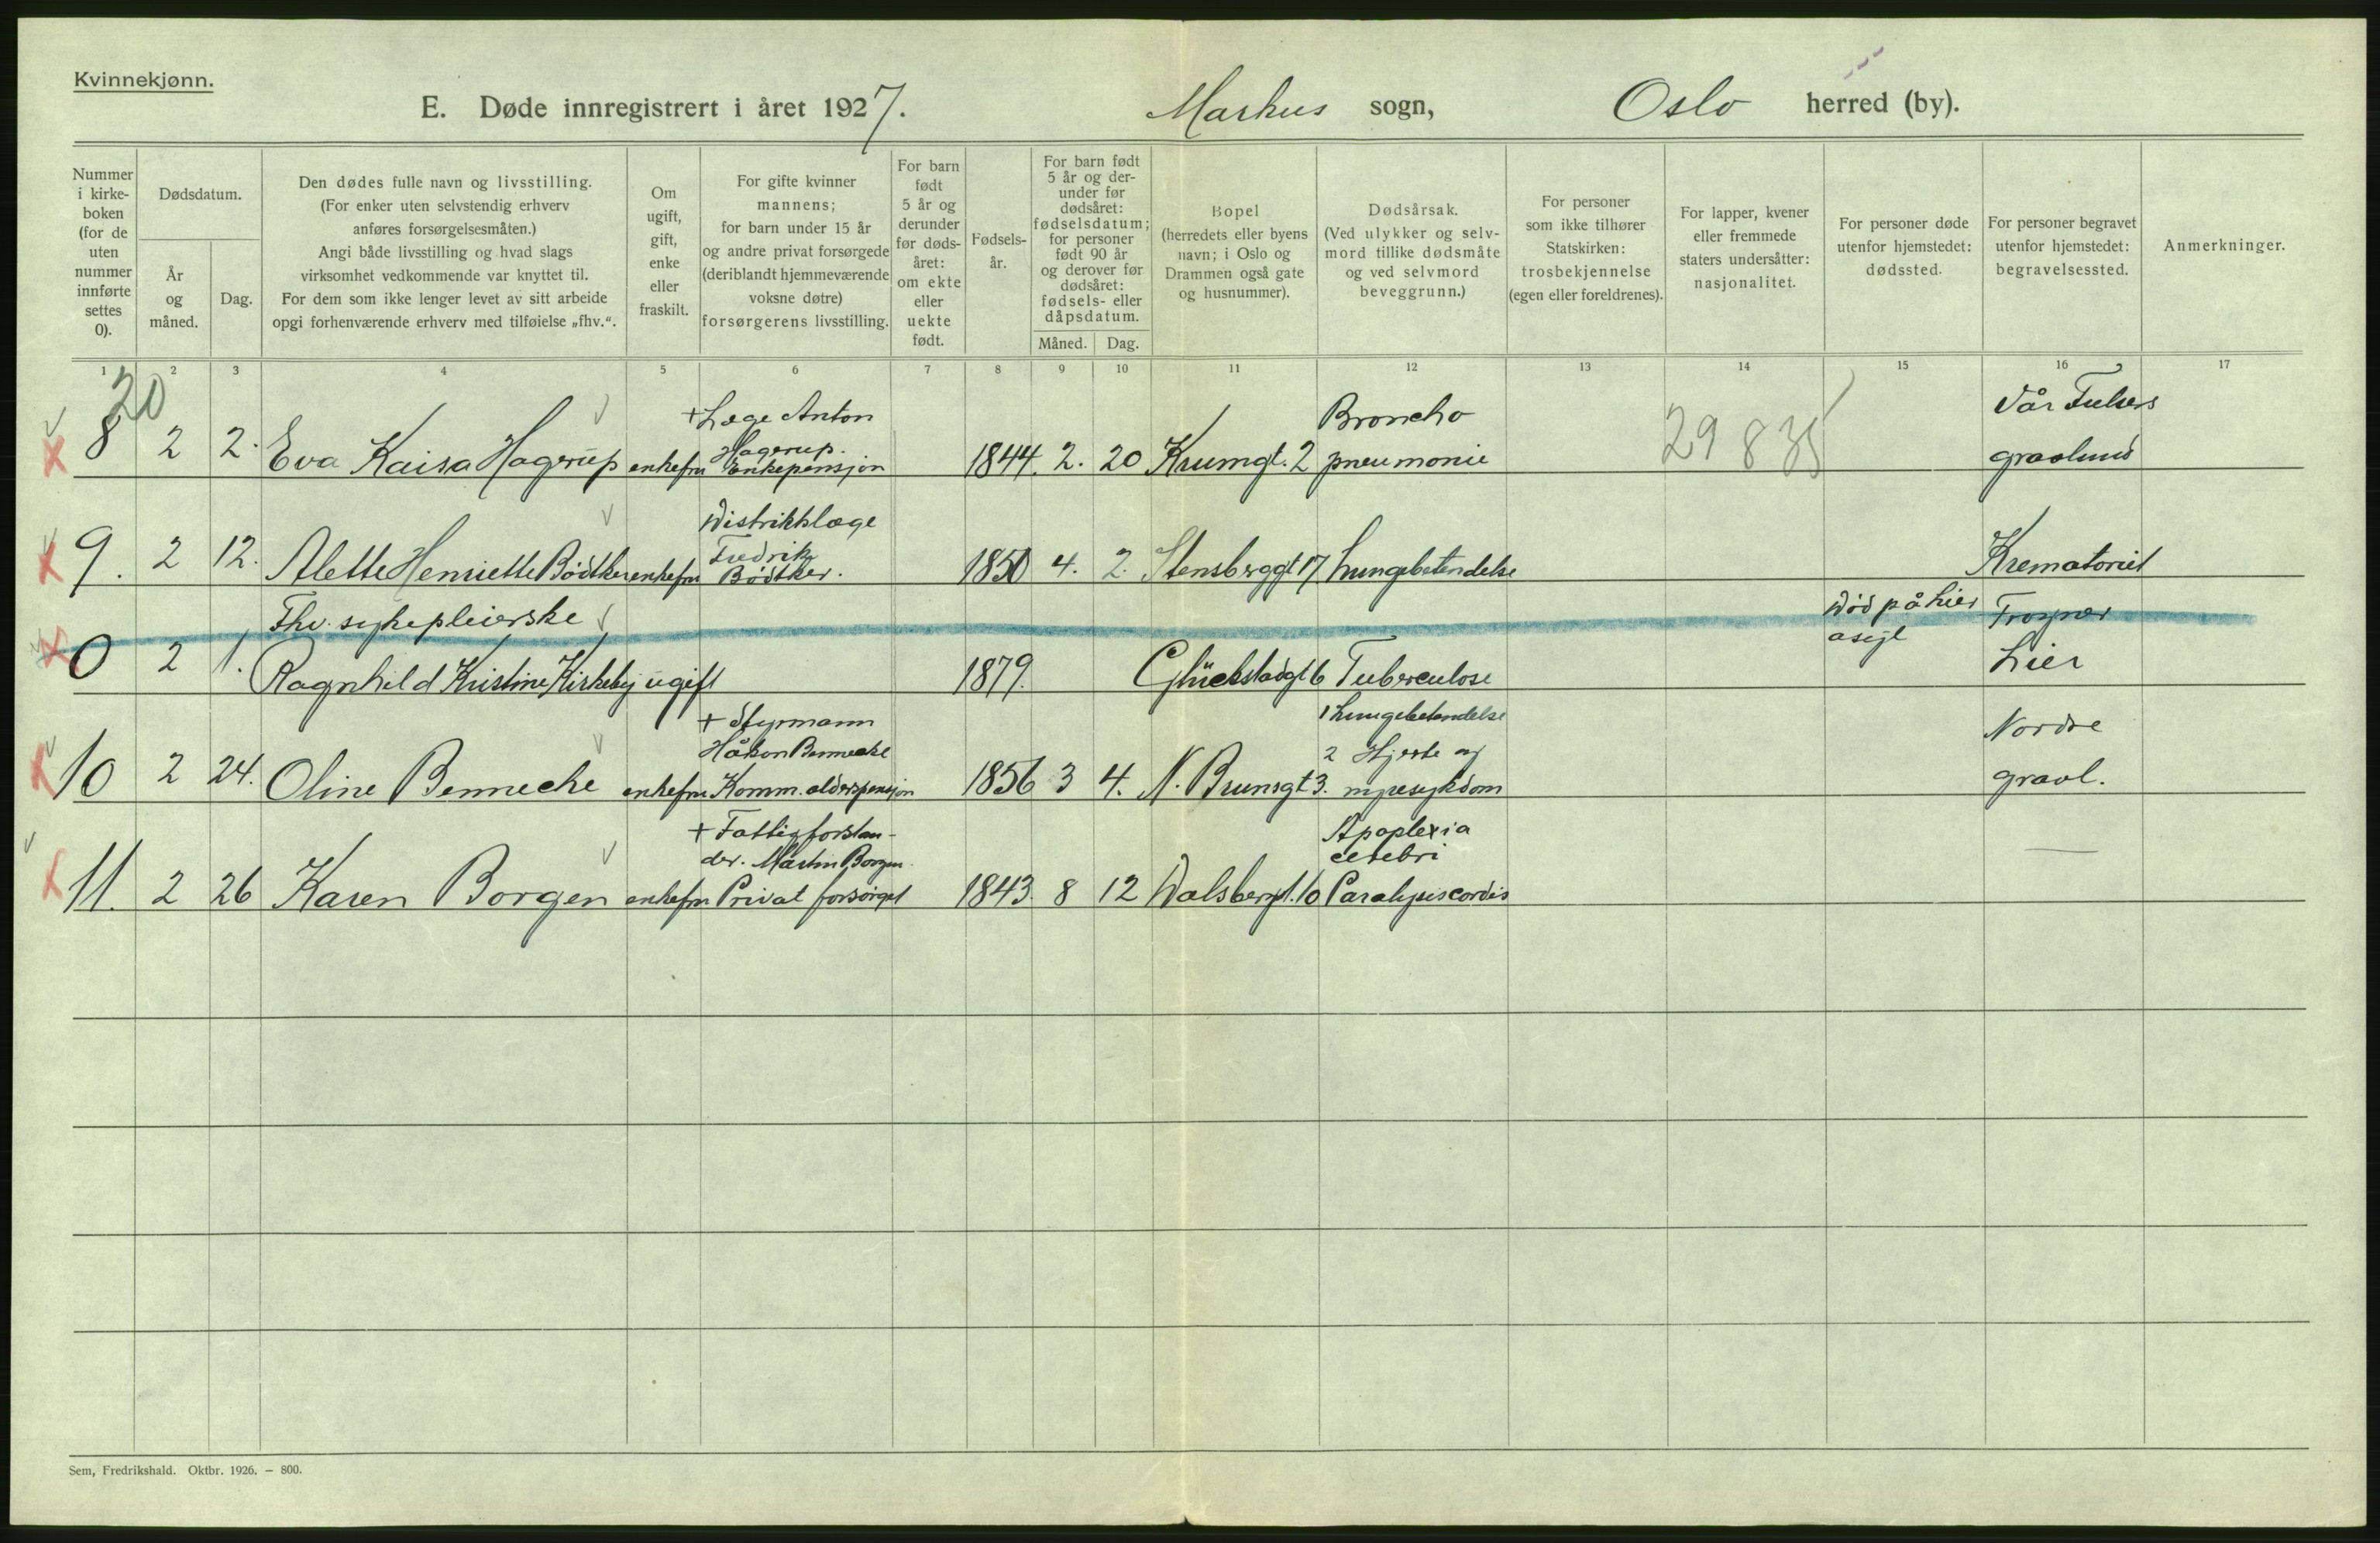 Kvinnekjønn.
E. Døde innregistrert i året 1927. Markus sogn, Oslo herred (by).
Nummer i kirke-boken (for de uten nummer innførte settes 0).
Dødsdatum.
År og måned.
Dag.
Den dødes fulle navn og livsstilling.
(For enker uten selvstendig erhverv
anføres forsørgelsesmåten.)
Angi både livsstilling og hvad slags
virksomhet vedkommende var knyttet til.
For dem som ikke lenger levet av sitt arbeide
opgi forhenværende erhverv med tilføielse „fhv.“.
Om
ugift,
gift,
enke
eller
fraskilt.
For gifte kvinner
mannens;
for barn under 15 år
og andre privat forsørgede
(deriblandt hjemmeværende
voksne døtre)
forsørgerens livsstilling.
For barn
født
5 år og
derunder
før døds-
året:
om ekte
eller
uekte
født.
Fødsels-
år.
For barn født
5 år og der-
under før
dødsåret:
fødselsdatum;
for personer
født 90 år
og derover før
dødsåret:
fødsels- eller
dåpsdatum.
Måned. Dag.
Bopel
(herredets eller byens
navn; i Oslo og
Drammen også gate
og husnummer).
Dødsårsak.
(Ved ulykker og selv-
mord tillike dødsmåte
og ved selvmord
beveggrunn.)
For personer
som ikke tilhører
Statskirken:
trosbekjennelse
(egen eller foreldrenes).
For lapper, kvener
eller fremmede
staters undersåtter:
nasjonalitet.
For personer døde
utenfor hjemstedet:
dødssted.
For personer begravet
utenfor hjemstedet:
begravelsessted.
Anmerkninger.
1 2 3 4 5 6 7 8 9 10 11 12 13 14 15 16 17
20
+ Læge Anton
Hagerup.
Broncho
Vår Frelsers
8 2 2. Eva Kaisa Hagerup enkefru Enkepensjon 1844. 2. 20 Krumgt. 2 pneumonie 29 8 35 gravlund
Distriktslæge
Fredrik
9. 2 12. Alette Henriette Bödtker enkefru Bödtker. 1850 4. 2. Stensberggt 17 Lungebetendelse Krematoriet
Fhv. sykepleierske
Död på Lier
asyl
Frogner
0 2 1. Ragnhild Kristine Kirkeby ugift 1879. Glückstadgt 6 Tuberculose Lier
+ Styrmann
Håkon Bennecke
1 Lungebetendelse
2 Hjerte og
Nordre
10 2 24. Oline Bennecke enkefru Komm. alderspensjon 1856 3 4. N. Brunsgt 3. nyresykdom gravl.
+ Fattigforstan-
der. Martin Borgen
Apoplexia
cerebri
—
11. 2 26 Karen Borgen enkefru Privat forsörget 1843. 8 12 Dalsbergt. 10 Paralysis cordis
Sem, Fredrikshald. Oktbr. 1926. — 800.